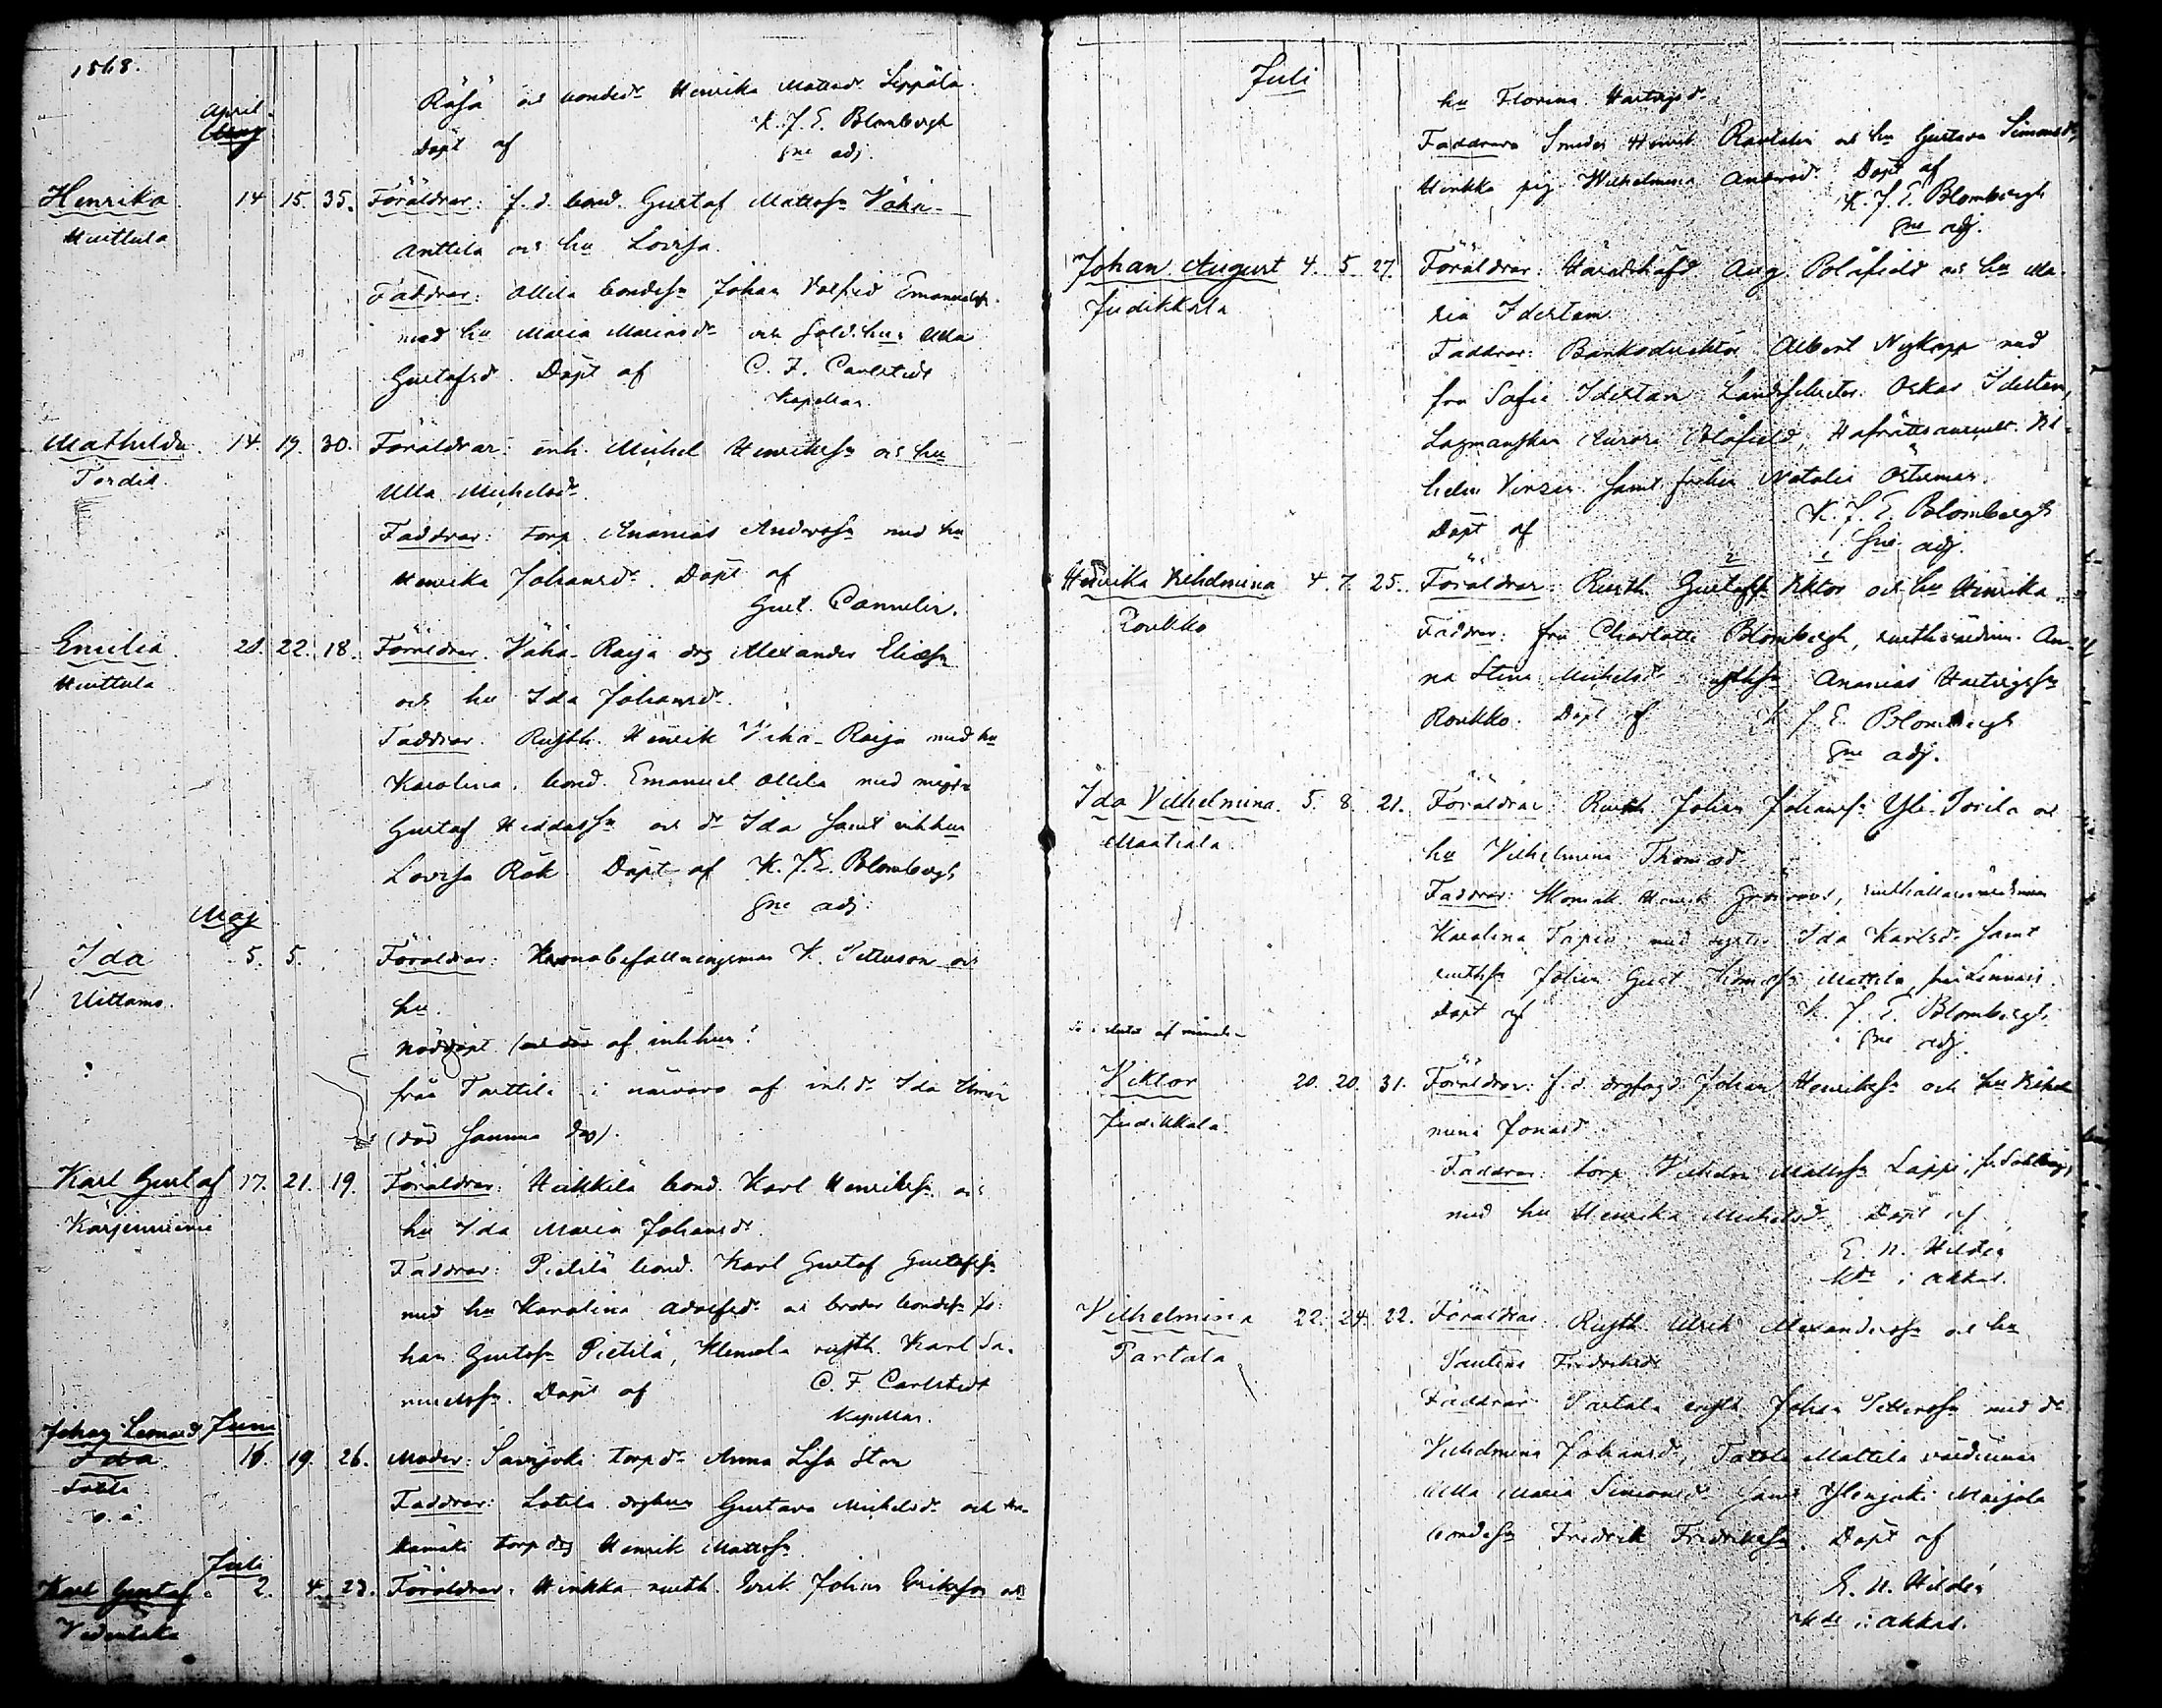 1868.
April.
Räsä och bonded. Henrika Mattsd. Seppälä.
Döpt af K. J. E. Blombergh
sne adj.
Henrika 14 15. 35. Föräldrar: f. d. bond. Gustaf Mattss. Vähä-
Huittula Anttila och hu Lovisa.
Faddrar: Ollila bondes. Johan Valfrid Emanuels.
med hu Maria Mariasd. och sold. hu: Ulla
Gustafsd. Döpt af C. F. Carlstedt
Kapellan.
Mathilda. 14. 19. 30. Föräldrar: inh. Michel Henrikss. och hu
Tordis. Ulla Michelsd.
Faddrar: torp. Ananias Anderss. med hu
Henrika Johansd. Döpt af
Gust. Cannelin.
Emilia. 20. 22. 18. Föräldrar. Vähä-Raija drg Alexander Eliass.
Huittula och hu Ida Johansd.
Faddrar. Rusth. Henrik Vähä-Raija med hu
Karolina, bond. Emanuel Ollila med mågen
Gustaf Heddass. och dr Ida samt inhhus
Lovisa Rök. Döpt af K. J. E. Blombergh
sne adj.
Maj
Ida 5. 5. Föräldrar: Kronobefallningsman K. Petterson och
Uittamo. hu.
Nöddöpt af inhhus:
från Tarttila i närvaro af inh. dr Ida
(död samma dag).
Karl Gustaf 17. 21. 19. Föräldrar: Heikkilä bond. Karl Henrikss. och
Kärjenniemi hu Ida Maria Johansd.
Faddrar: Pietilä bond. Karl Gustaf Gustafss.
med hu Karolina Adolfsd. och broder bondes. Jo-
han Gustafs. Pietilä, Klemola rusth. Karl Sa-
muelss. Döpt af C. F. Carlstedt
Kapellan.
Johan Leonard Juni
Ida. 16. 19. 26. Moder: Savijoki torp dr Anna Lisa Sten
o. ä. Faddrar: Lotila drghus Gustava Michelsd. och
torp drg Henrik Mattss.
Juli
Karl Gustaf. 2. 4. 23. Föräldrar: Hinkka rusth. Erik Johan Erikson och
Juli
hu Florina Hartvigsd.
Faddrar: Smeden Henrik och hu Gustava Simonsd.,
Hinkka pig. Wilhelmina Andersd. Döpt af
K. J. E. Blombergh
sne adj.
Johan August 4. 5. 27. Föräldrar: Häradshöfd. Aug. Blåfield och hu Ma-
Judikkala ria Idestam
Faddrar: Banksdirektör Albert Nykopp med
fru Sofie Idestam, Landssekreter. Oskar Idestam,
Lagmanskan Aurora Blåfield, Hofrättsauscult.
samt fröken Natalia Österman.
Döpt af K. J. E. Blombergh
sne adj.
Henrika Vilhelmina 4. 7. 25. Föräldrar: Rusth. Gustafs. Viktor och hu Henrika.
Roukko Faddrar: fru Charlotte Blombergh, rusth. värdinn. An-
na Stina Michelsd. rusths. Ananias Hartvigss.
Roukko. Döpt af K. J. E. Blombergh
sne adj.
Ida Vilhelmina. 5. 8. 21. Föräldrar: Rusth. Johan Johanss. Yli-Torila och
Maatiala. hu Vilhelmina Thomasd.
Faddrar: Henrik Grönroos, rusthållarevärdinnan
Karolina Tapio med syster Ida Karlsd. samt
rusths. Johan Gust. Thomass. Mattila.
Döpt af K. J. E. Blombergh
sne adj.
Viktor 20. 20. 31. Föräldrar: f. d. drgfogd. Johan Henrikss. och hu Vilhel-
Judikkala. mina Jonasd.
Faddrar: torp. Vilhelm Mattss. Lappi,
med hu Henrika Michelsd. Döpt af
E. N. Hildén
i Akkas.
Vilhelmina 22. 24. 22. Föräldrar: Rusth. Ulrik Alexanderss. och hu
Partala Paulina Fredriksd.
Faddrar: Partala rusth. Johan Petterss. med dr
Vilhelmina Johansd., Mattila värdinnan
Ulla Maria Simonsd. samt Maijala
bondes. Fredrik Fredrikss. Döpt af
E. N. Hildén
i Akkas.